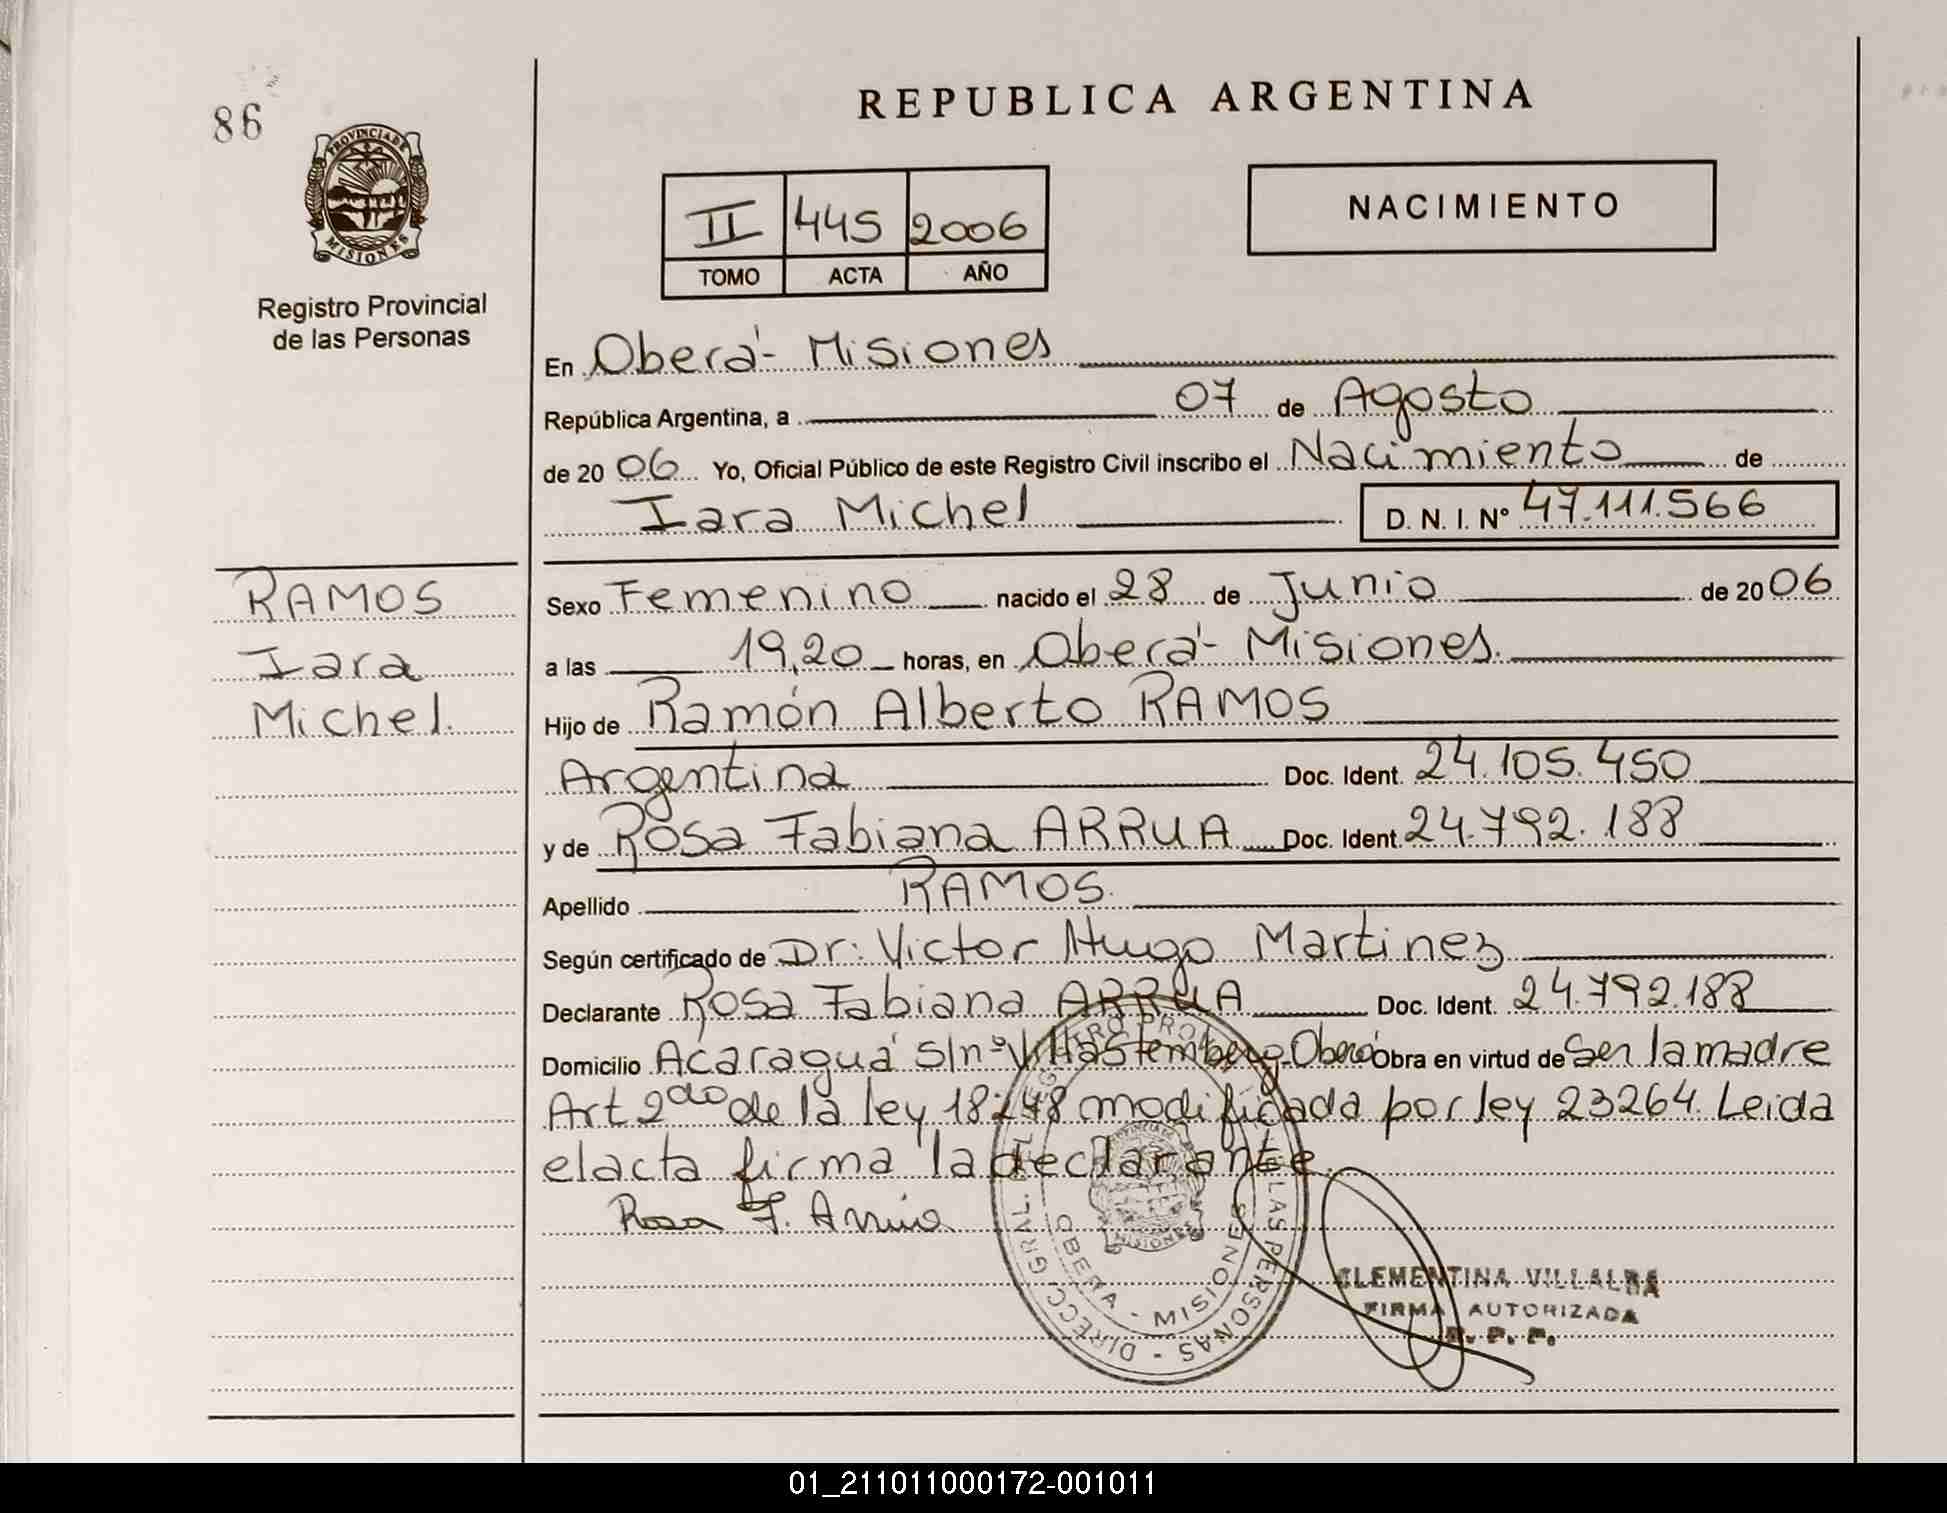 86
PROVINCIA DE
MISIONES
Registro Provincial
de las Personas
REPUBLICA ARGENTINA
II 445 2006
TOMO ACTA AÑO
NACIMIENTO
En Oberá - Misiones
República Argentina, a 07 de Agosto
de 2006 Yo, Oficial Público de este Registro Civil inscribo el Nacimiento de
Iara Michel D. N. I. Nº 47.111.566
RAMOS
Iara
Michel.
Sexo Femenino nacido el 28 de Junio de 2006
a las 19,20 horas, en Oberá - Misiones.
Hijo de Ramón Alberto RAMOS
Argentina Doc. Ident. 24.105.450
y de Rosa Fabiana ARRUA Doc. Ident. 24.792.188
Apellido RAMOS.
Según certificado de Dr: Victor Hugo Martinez
Declarante Rosa Fabiana ARRUA Doc. Ident. 24.792.188
Domicilio Acaraguá S/nº Villa Stemberg - Oberá Obra en virtud de Ser la madre
Art 2do de la ley 18248 modificada por ley 23264. Leida
el acta firma la declarante.
Rosa F. Arrua
OBERA - MISIONES
CLEMENTINA VILLALBA
FIRMA AUTORIZADA
R. P. P.
01_211011000172-001011